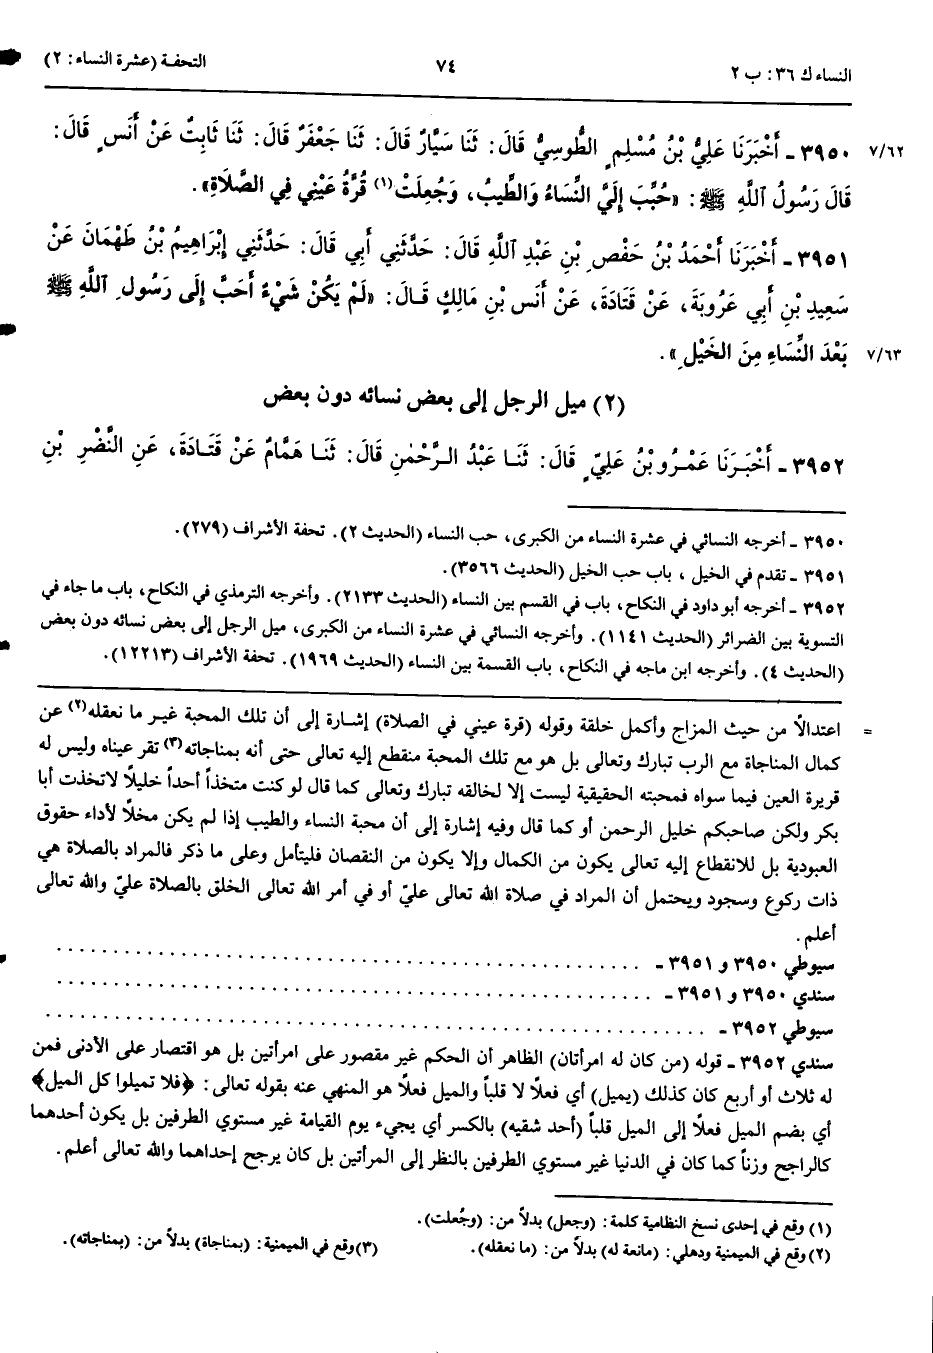 النساء ك ٣٦: ب ٢
٧٤
التحفة (عشرة النساء: ٢)
٧/٦٢ ٣٩٥٠ ـ أَخْبَرَنَا عَلِيُّ بْنُ مُسْلِمٍ الطُّوسِيُّ قَالَ: ثَنَا سَيَّارٌ قَالَ: ثَنَا جَعْفَرٌ قَالَ: ثَنَا ثَابِتٌ عَنْ أَنَسٍ قَالَ:
قَالَ رَسُولُ ٱللَّهِ ﷺ: «حُبِّبَ إِلَيَّ النِّسَاءُ وَالطِّيبُ، وَجُعِلَتْ(١) قُرَّةُ عَيْنِي فِي الصَّلَاةِ».
٣٩٥١ ـ أَخْبَرَنَا أَحْمَدُ بْنُ حَفْصِ بْنِ عَبْدِ ٱللَّهِ قَالَ: حَدَّثَنِي أَبِي قَالَ: حَدَّثَنِي إِبْرَاهِيمُ بْنُ طَهْمَانَ عَنْ
سَعِيدِ بْنِ أَبِي عَرُوبَةَ، عَنْ قَتَادَةَ، عَنْ أَنَسِ بْنِ مَالِكٍ قَالَ: «لَمْ يَكُنْ شَيْءٌ أَحَبَّ إِلَى رَسُولِ ٱللَّهِ ﷺ
٧/٦٣ بَعْدَ النِّسَاءِ مِنَ الخَيْلِ».
(٢) ميل الرجل إلى بعض نسائه دون بعض
٣٩٥٢ ـ أَخْبَرَنَا عَمْرُو بْنُ عَلِيٍّ قَالَ: ثَنَا عَبْدُ الرَّحْمٰنِ قَالَ: ثَنَا هَمَّامٌ عَنْ قَتَادَةَ، عَنِ النَّضْرِ بْنِ
٣٩٥٠ ـ أخرجه النسائي في عشرة النساء من الكبرى، حب النساء (الحديث ٢). تحفة الأشراف (٢٧٩).
٣٩٥١ ـ تقدم في الخيل ، باب حب الخيل (الحديث ٣٥٦٦).
٣٩٥٢ ـ أخرجه أبو داود في النكاح، باب في القسم بين النساء (الحديث ٢١٣٣). وأخرجه الترمذي في النكاح، باب ما جاء في
التسوية بين الضرائر (الحديث ١١٤١). وأخرجه النسائي في عشرة النساء من الكبرى، ميل الرجل إلى بعض نسائه دون بعض
(الحديث ٤). وأخرجه ابن ماجه في النكاح، باب القسمة بين النساء (الحديث ١٩٦٩). تحفة الأشراف (١٢٢١٣).
= اعتدالاً من حيث المزاج وأكمل خلقة وقوله (قرة عيني في الصلاة) إشارة إلى أن تلك المحبة غير ما نعقله(٢) عن
كمال المناجاة مع الرب تبارك وتعالى بل هو مع تلك المحبة منقطع إليه تعالى حتى أنه بمناجاته(٣) تقر عيناه وليس له
قريرة العين فيما سواه فمحبته الحقيقية ليست إلا لخالقه تبارك وتعالى كما قال لو كنت متخذاً أحداً خليلًا لاتخذت أبا
بكر ولكن صاحبكم خليل الرحمن أو كما قال وفيه إشارة إلى أن محبة النساء والطيب إذا لم يكن مخلًا لأداء حقوق
العبودية بل للانقطاع إليه تعالى يكون من الكمال وإلا يكون من النقصان فليتأمل وعلى ما ذكر فالمراد بالصلاة هي
ذات ركوع وسجود ويحتمل أن المراد في صلاة الله تعالى عليّ أو في أمر الله تعالى الخلق بالصلاة عليّ والله تعالى
أعلم.
سيوطي ٣٩٥٠ و ٣٩٥١ ـ . . . . . . . . . . . . . . . . . . . . . . . . . . . . . .
سندي ٣٩٥٠ و ٣٩٥١ ـ . . . . . . . . . . . . . . . . . . . . . . . . . . . . . .
سيوطي ٣٩٥٢ ـ . . . . . . . . . . . . . . . . . . . . . . . . . . . . . .
سندي ٣٩٥٢ ـ قوله (من كان له امرأتان) الظاهر أن الحكم غير مقصور على امرأتين بل هو اقتصار على الأدنى فمن
له ثلاث أو أربع كان كذلك (يميل) أي فعلًا لا قلباً والميل فعلًا هو المنهي عنه بقوله تعالى: ﴿فلا تميلوا كل الميل﴾
أي بضم الميل فعلًا إلى الميل قلباً (أحد شقيه) بالكسر أي يجيء يوم القيامة غير مستوي الطرفين بل يكون أحدهما
كالراجح وزناً كما كان في الدنيا غير مستوي الطرفين بالنظر إلى المرأتين بل كان يرجح إحداهما والله تعالى أعلم.
(١) وقع في إحدى نسخ النظامية كلمة: (وجعل) بدلاً من: (وجُعلت).
(٢) وقع في الميمنية ودهلي: (مانعة له) بدلاً من: (ما نعقله). (٣) وقع في الميمنية: (بمناجاة) بدلاً من: (بمناجاته).